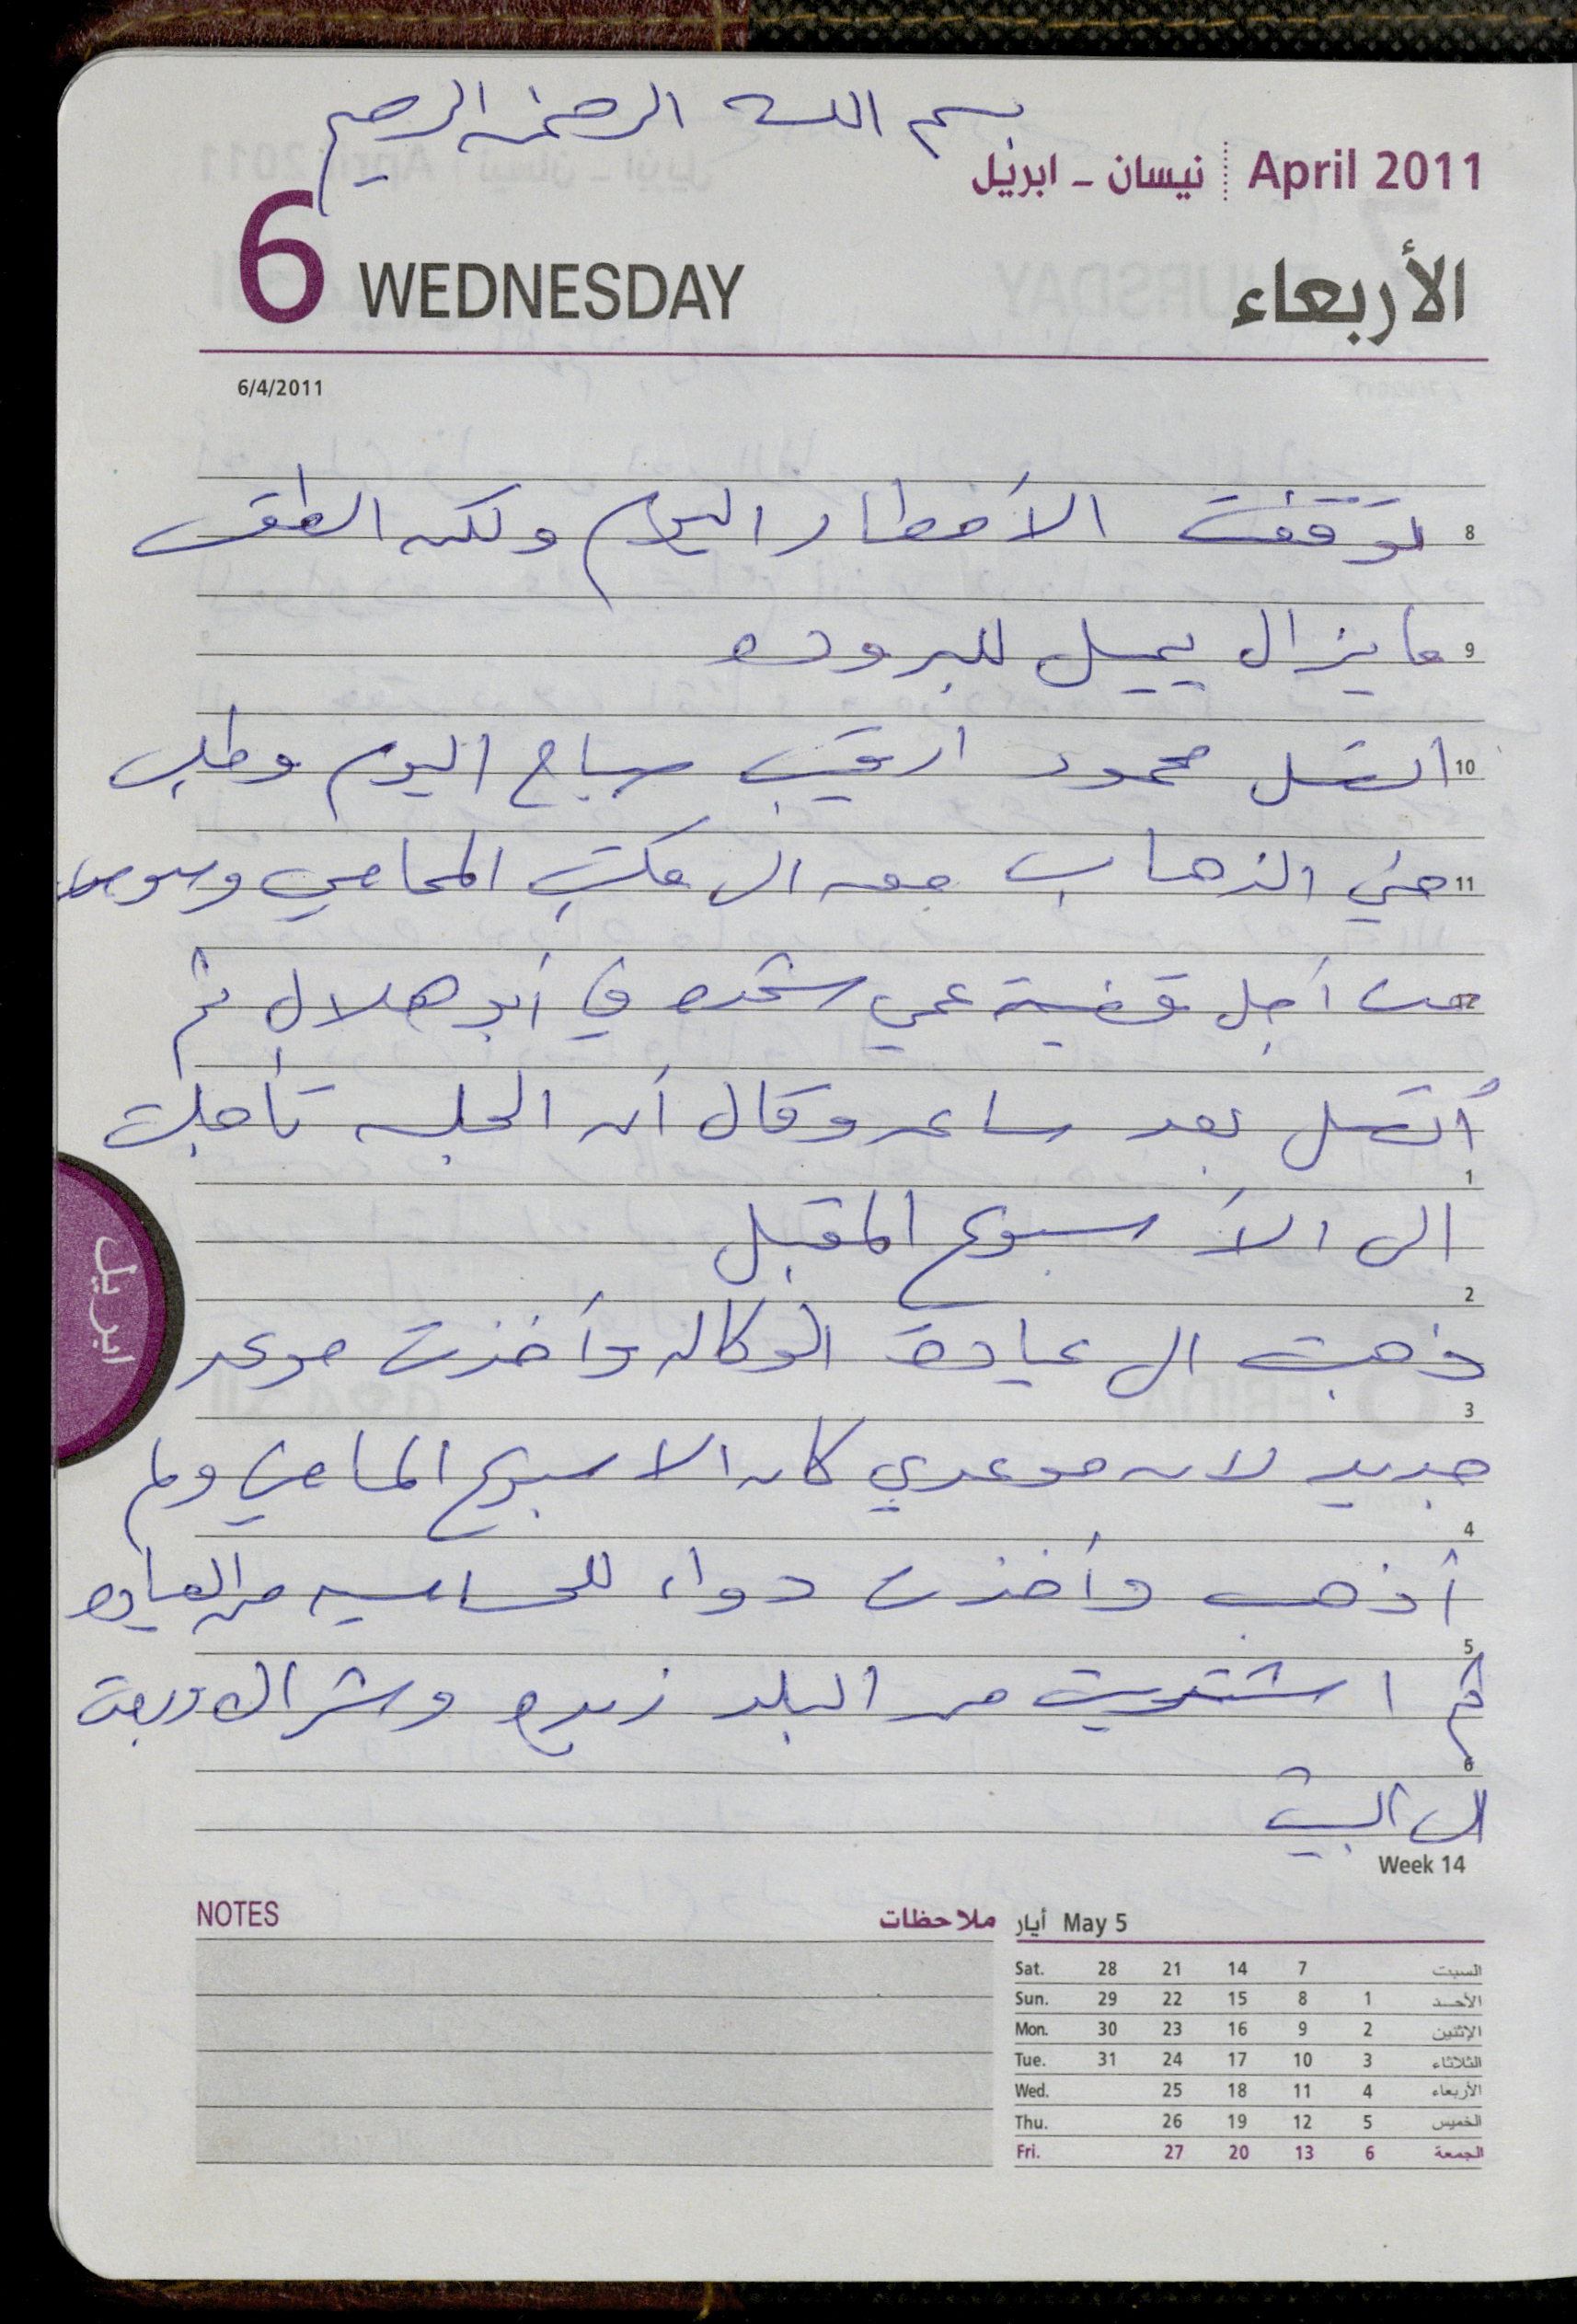 بسم الله الرحمن الرحيم
April 2011 نيسان - ابريل
6 WEDNESDAY الأربعاء
6/4/2011
8 توقفت الأمطار اليوم ولكن الطقس
9 ما يزال يميل للبروده
10 اتصل محمود ارقيب صباح اليوم وطلب
11 مني الذهاب معه الى مكتب المحامي
12 من أجل قضية عمي شحده في أبو هلال ثم
أتصل بعد ساعه وقال أن الجلسه تأجلت
1
الى الأسبوع المقبل
2
ذهبت الى عيادة الوكاله وأخذت موعد
3
جديد لان موعدي كان الاسبوع الماضي ولم
4
أذهب وأخذت دواء للحساسيه من العياده
5
ثم اشتريت من البلد وشراك ورجعت
6
الى البيت
ابريل
Week 14
NOTES ملاحظات
أيار May 5
Sat. 28 21 14 7 السبت
Sun. 29 22 15 8 1 الأحد
Mon. 30 23 16 9 2 الإثنين
Tue. 31 24 17 10 3 الثلاثاء
Wed. 25 18 11 4 الأربعاء
Thu. 26 19 12 5 الخميس
Fri. 27 20 13 6 الجمعة